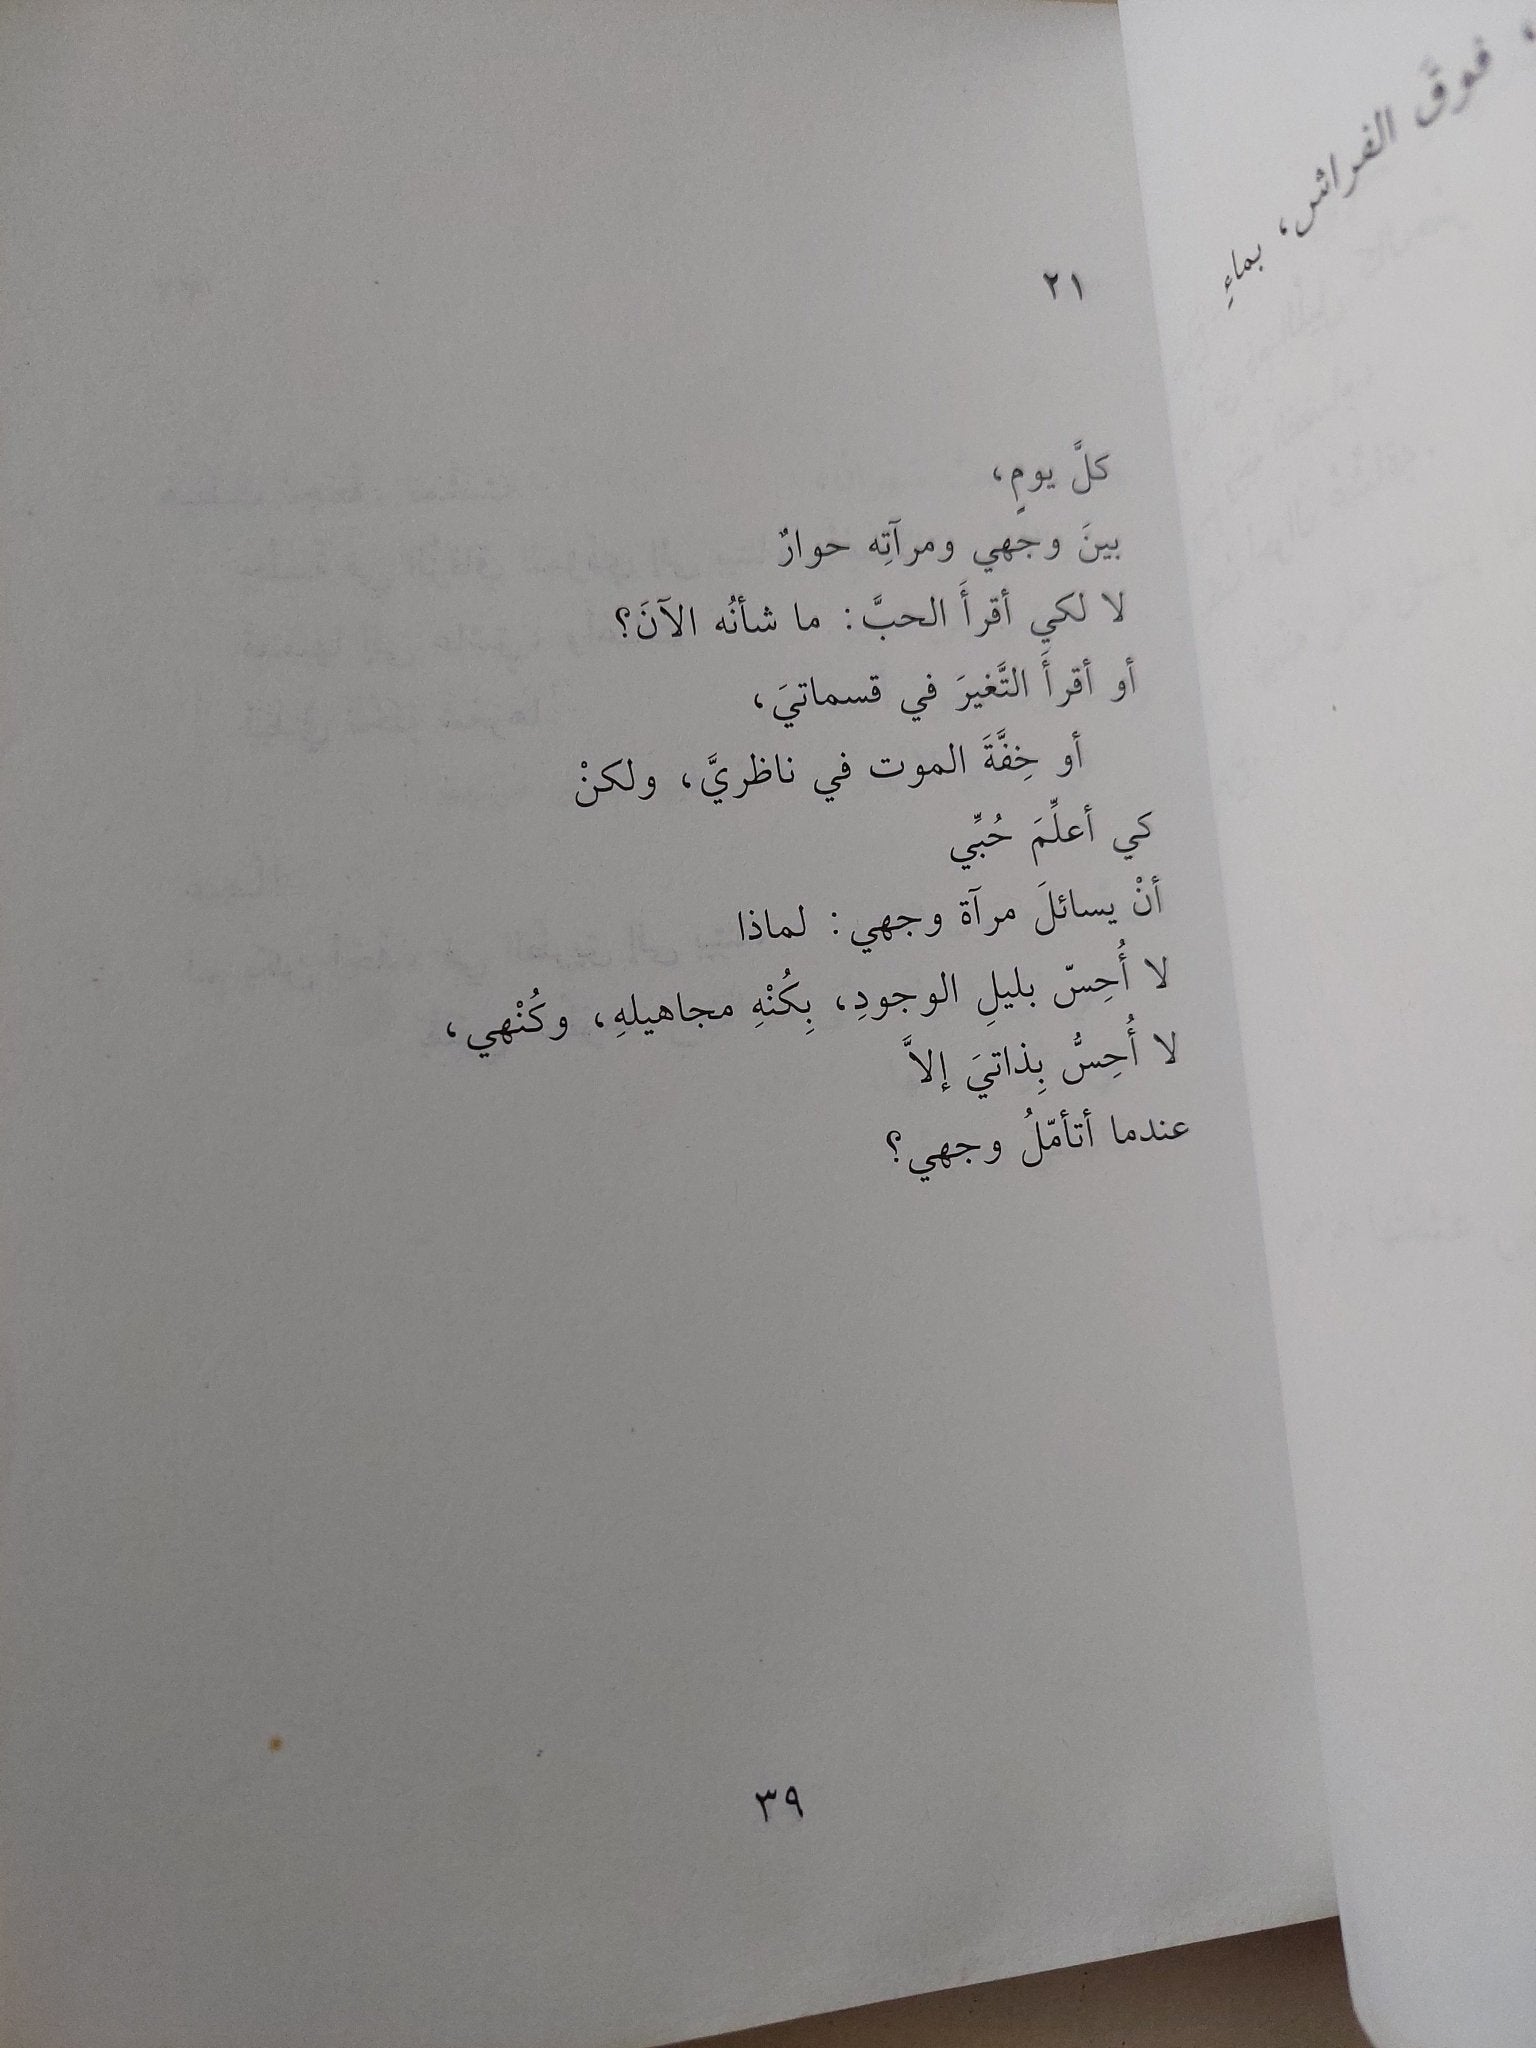 فوقَ الفراش، بماءِ
٢١
كلَّ يومٍ،
بينَ وجهي ومرآتِه حوارٌ
لا لكي أقرأَ الحبَّ: ما شأنُه الآنَ؟
أو أقرأَ التَّغيرَ في قسماتيَ،
أو خِفَّةَ الموت في ناظريَّ، ولكنْ
كي أعلِّمَ حُبِّي
أنْ يسائلَ مرآة وجهي: لماذا
لا أُحِسّ بليلِ الوجودِ، بِكُنْهِ مجاهيلهِ، وكُنْهي،
لا أُحِسُّ بِذاتيَ إلاَّ
عندما أتأمّلُ وجهي؟
٣٩